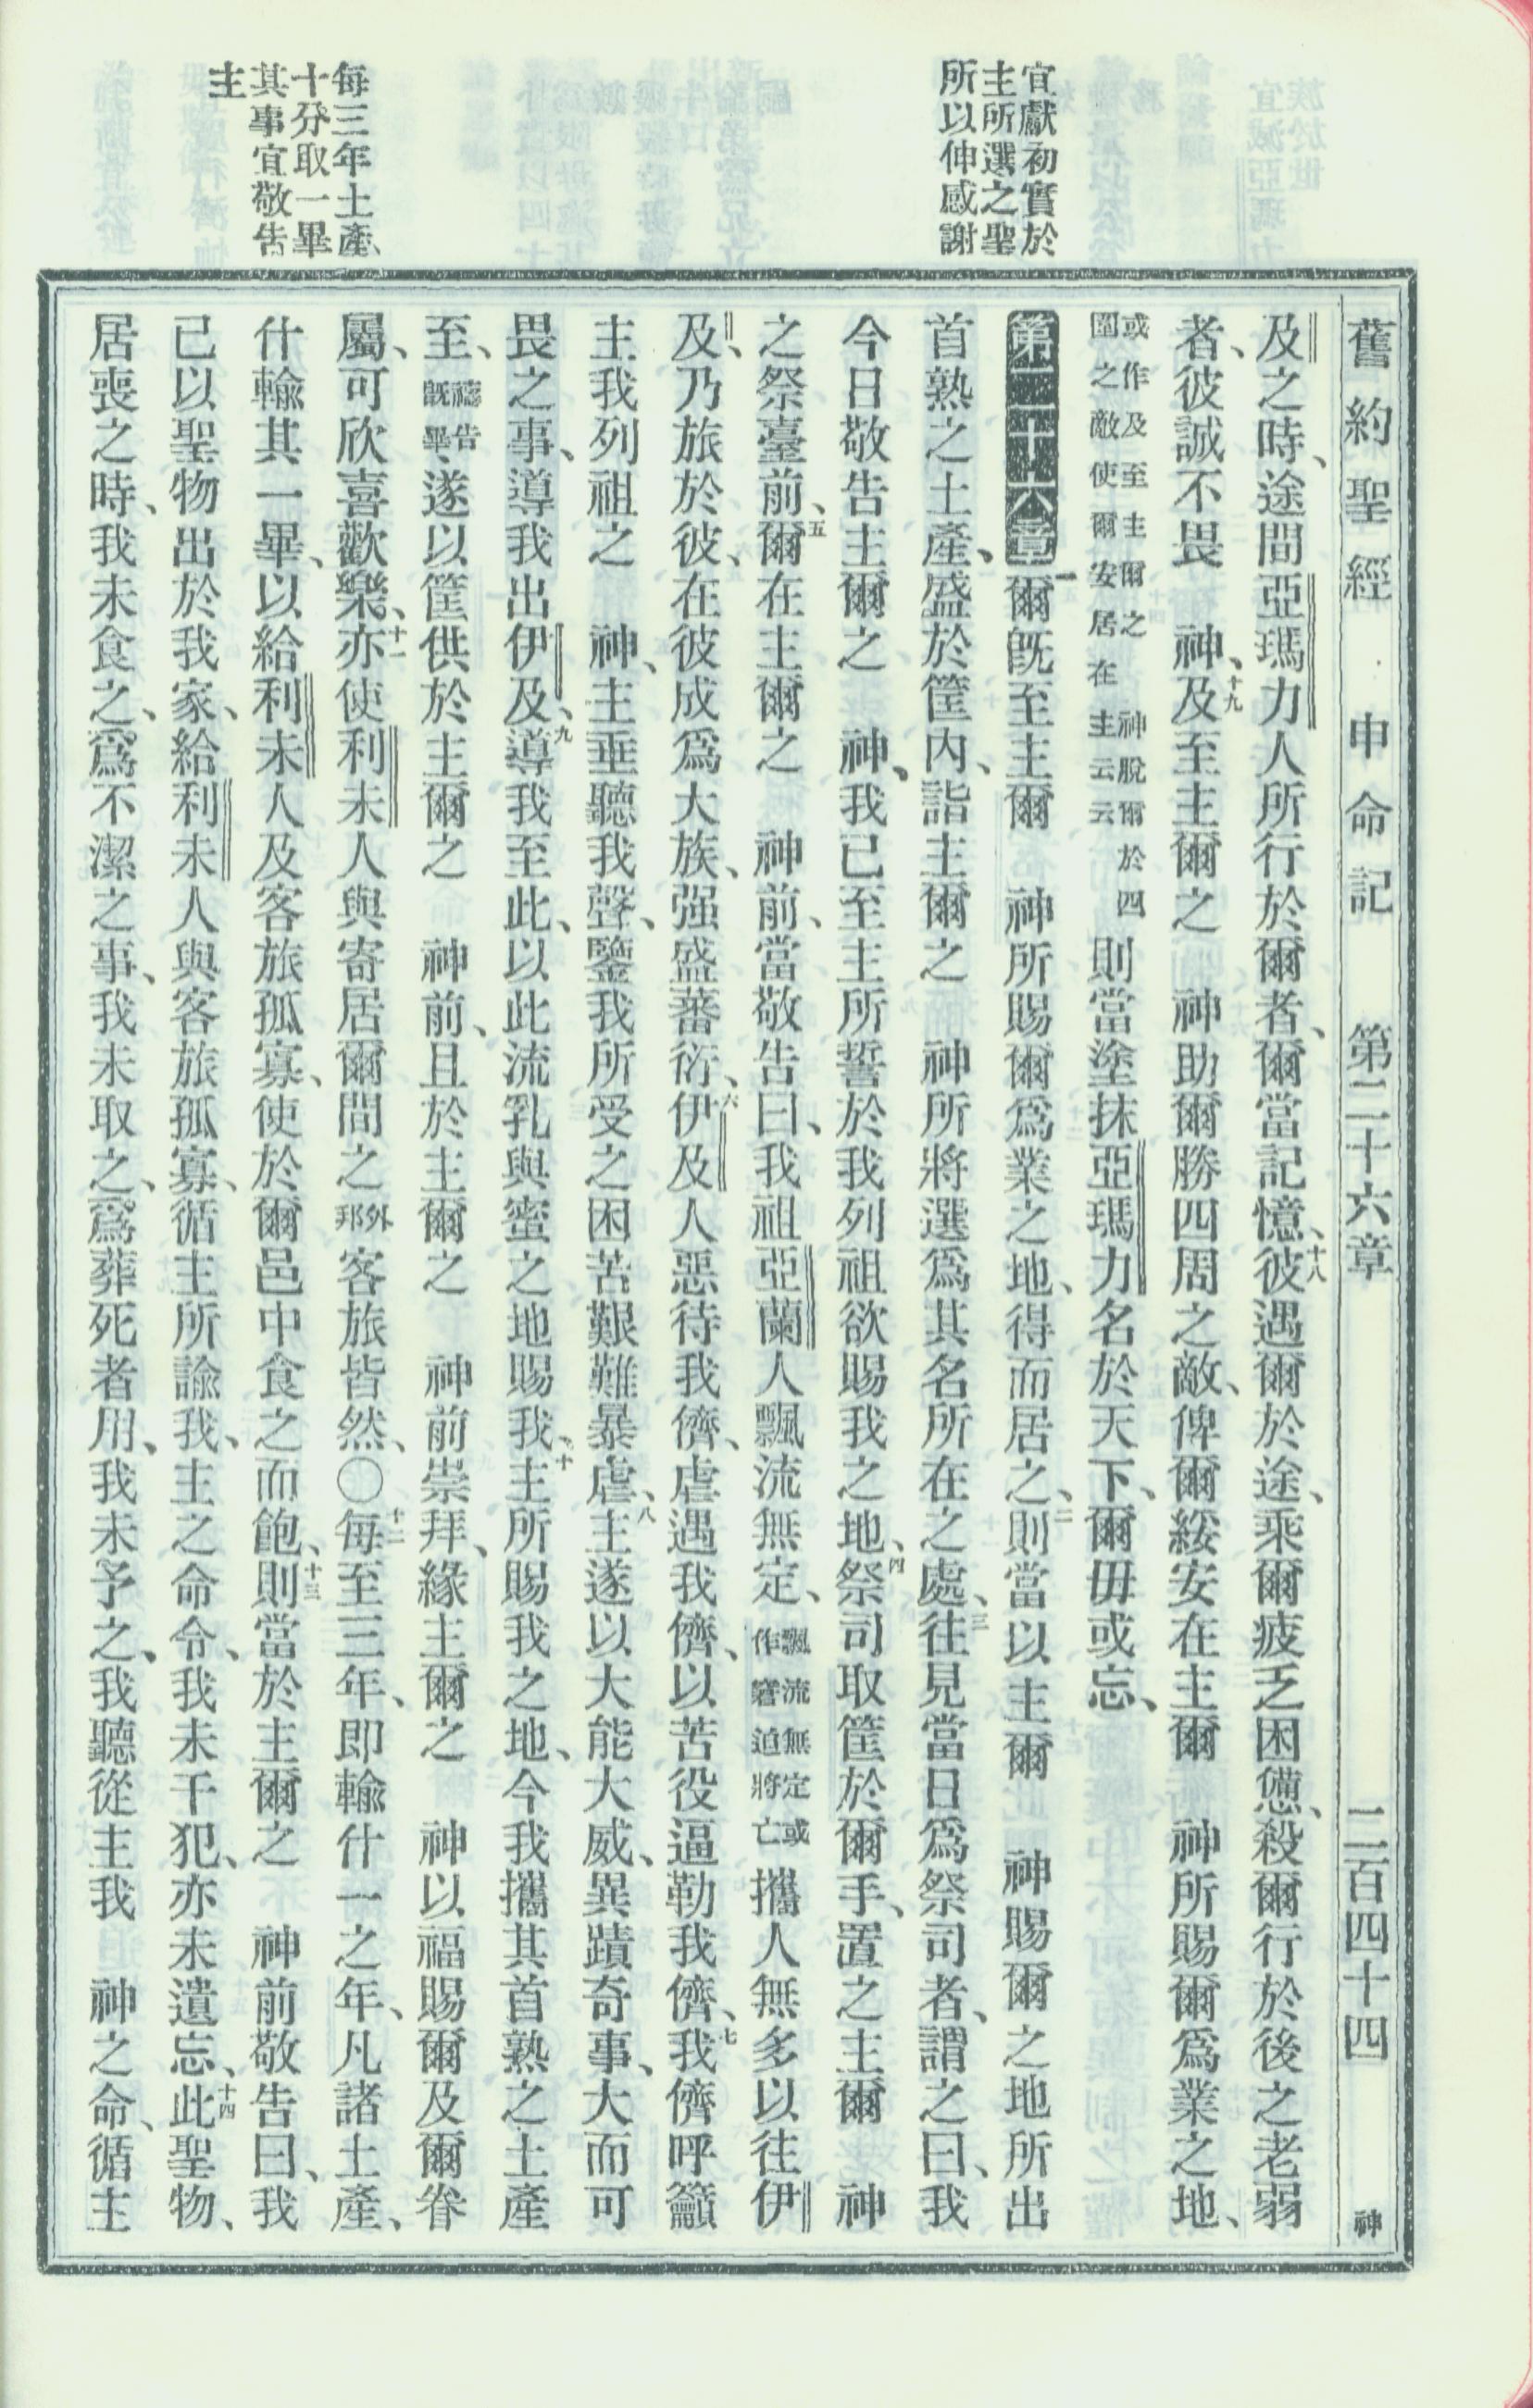 舊約聖經　申命記　第二十六章　二百四十四　神
宜獻初實於
主所選之聖
所以伸感謝
每三年土產、
十分取一畢
其事宜敬告
主
及之時、途間亞瑪力人所行於爾者、爾當記憶、十八彼遇爾於途、乘爾疲乏困憊、殺爾行於後之老弱
者、彼誠不畏　神、十九及至主爾之　神助爾勝四周之敵、俾爾綏安在主爾　神所賜爾爲業之地、
或作及至主爾之　神脫爾於四圍之敵使爾安居在主云云則當塗抹亞瑪力名於天下、爾毋或忘、
第二十六章　一爾旣至主爾　神所賜爾爲業之地、得而居之、二則當以主爾　神賜爾之地所出
首熟之土產、盛於筐內、詣主爾之　神所將選爲其名所在之處、三往見當日爲祭司者、謂之曰、我
今日敬告主爾之　神、我已至主所誓於我列祖欲賜我之地、四祭司取筐於爾手、置之主爾　神
之祭臺前、五爾在主爾之　神前、當敬告曰、我祖亞蘭人飄流無定、飄流無定或作窘迫將亡攜人無多以往伊
及、乃旅於彼、在彼成爲大族、强盛蕃衍、六伊及人惡待我儕、虐遇我儕、以苦役逼勒我儕、七我儕呼籲
主我列祖之　神、主垂聽我聲、鑒我所受之困苦艱難暴虐、八主遂以大能大威、異蹟奇事、大而可
畏之事、導我出伊及、九導我至此、以此流乳與蜜之地賜我、十主所賜我之地、今我攜其首熟之土產
至、禱告旣畢、遂以筐供於主爾之　神前、且於主爾之　神前崇拜、緣主爾之　神以福賜爾及爾眷
屬、可欣喜歡樂、十一亦使利未人與寄居爾間之外邦客旅皆然、〇十二每至三年、即輸什一之年、凡諸土產、
什輸其一畢、以給利未人及客旅孤寡、使於爾邑中食之而飽、十三則當於主爾之　神前敬告曰、我
已以聖物出於我家、給利未人與客旅孤寡、循主所諭我、主之命令、我未干犯、亦未遺忘、十四此聖物、
居喪之時、我未食之、爲不潔之事、我未取之、爲葬死者用、我未予之、我聽從主我　神之命、循主